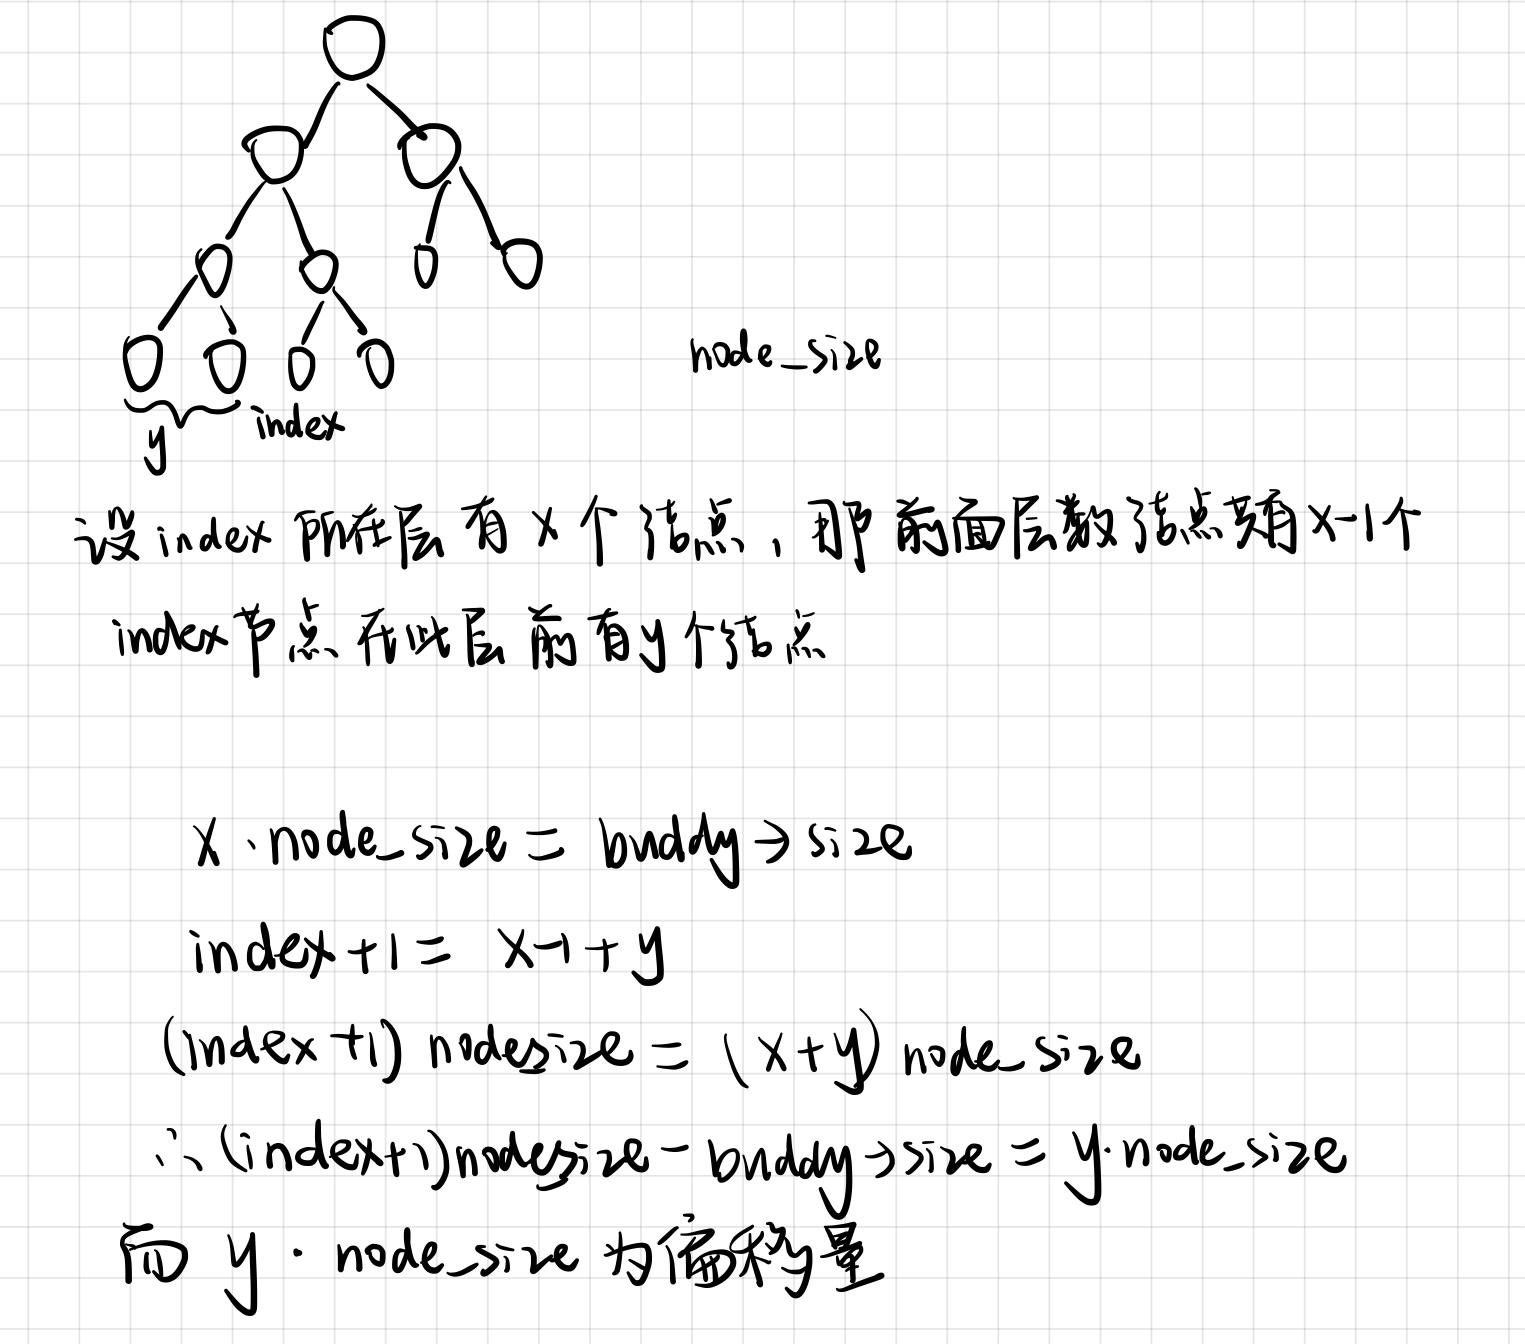 node_size
y index
设index所在层有x个结点，那前面层数结点共有x-1个
index节点在此层前有y个结点
x·node_size = buddy→size
index+1= x-1+y
(index+1) nodesize = (x+y) node_size
∴(index+1)nodesize - buddy→size = y·node_size
而 y·node_size为偏移量